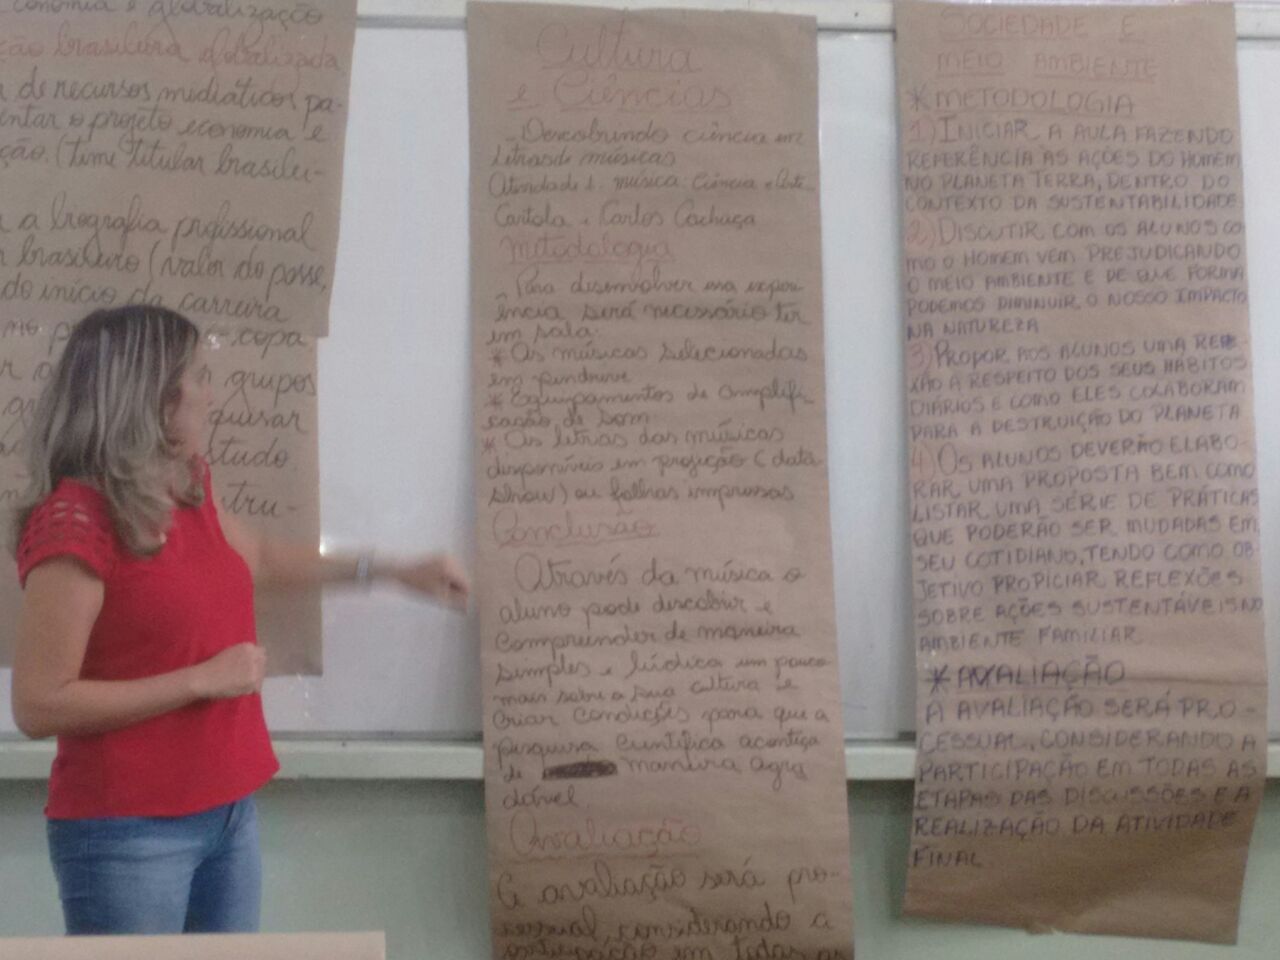 conomia e globalização
ção brasileira globalizada
de recursos midiáticos pa-
entar o projeto economia e
ção. (time titular brasilei-
a biografia profissional
brasileiro (valor do passe,
do início da carreira
copa
grupos
quisar
studo.
tru-
Cultura
e Ciências
- Descobrindo ciência em
letras de músicas
Atividade 1. música: Ciência e Arte
Cartola e Carlos Cachaça
Metodologia
Para desenvolver essa experi
ência será necessário ter
em sala:
* As músicas selecionadas
em pendrive
* Equipamentos de amplifi
cação de som
* As letras das músicas
disponíveis em projeção (data
show) ou folhas impressas
Conclusão
Através da música o
aluno pode descobrir e
compreender de maneira
simples e lúdica um pouco
mais sobre a sua cultura e
criar condições para que a
pesquisa científica aconteça
de maneira agra
dável.
Avaliação
A avaliação será pro-
cessual, considerando a
participação em todas as
SOCIEDADE E
MEIO AMBIENTE
* METODOLOGIA
1) INICIAR A AULA FAZENDO
REFERÊNCIA ÀS AÇÕES DO HOMEM
NO PLANETA TERRA, DENTRO DO
CONTEXTO DA SUSTENTABILIDADE.
2) DISCUTIR COM OS ALUNOS CO
MO O HOMEM VEM PREJUDICANDO
O MEIO AMBIENTE E DE QUE FORMA
PODEMOS DIMINUIR O NOSSO IMPACTO
NA NATUREZA
3) PROPOR AOS ALUNOS UMA REFLE-
XÃO A RESPEITO DOS SEUS HÁBITOS
DIÁRIOS E COMO ELES COLABORAM
PARA A DESTRUIÇÃO DO PLANETA
4) OS ALUNOS DEVERÃO ELABO-
RAR UMA PROPOSTA BEM COMO
LISTAR UMA SÉRIE DE PRÁTICAS
QUE PODERÃO SER MUDADAS EM
SEU COTIDIANO, TENDO COMO OB-
JETIVO PROPICIAR REFLEXÕES
SOBRE AÇÕES SUSTENTÁVEIS NO
AMBIENTE FAMILIAR
* AVALIAÇÃO
A AVALIAÇÃO SERÁ PRO-
CESSUAL, CONSIDERANDO A
PARTICIPAÇÃO EM TODAS AS
ETAPAS DAS DISCUSSÕES E A
REALIZAÇÃO DA ATIVIDADE
FINAL